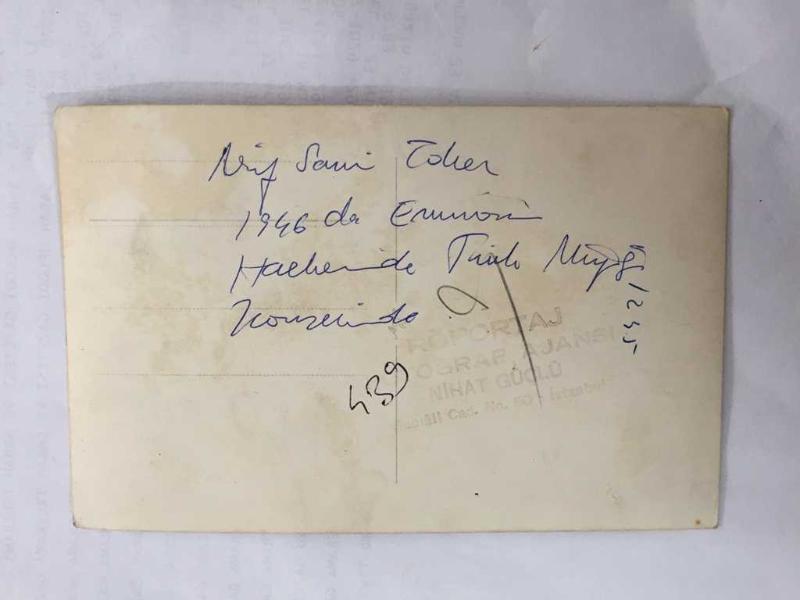 Arif Sami Toker
1946 da Eminönü
Halkevinde Türk Müziği
Konserinde
439
RÖPORTAJ
OGRAF AJANSI
NİHAT GÜÇLÜ
Cad. No. İstanbul